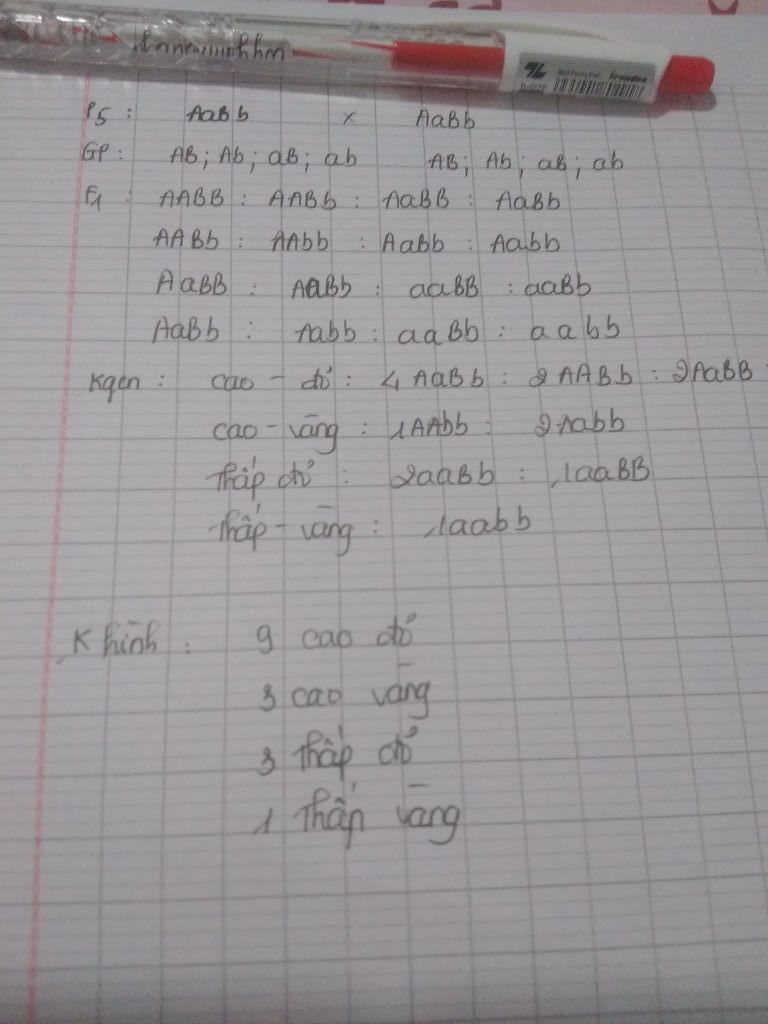 TL
P5 : AaBb x AaBb
GP : AB ; Ab ; aB ; ab AB ; Ab ; aB ; ab
F1 : AABB : AABb : AaBB : AaBb
AABb : AAbb : Aabb : Aabb
AaBB : AaBb : aaBB : aaBb
AaBb : Aabb : aaBb : aabb
Kgen : cao - đỏ : 4 AaBb : 2 AABb : 2AaBB
cao - vàng : 1AAbb : 2Aabb
thấp đỏ : 2aaBb : 1aaBB
thấp - vàng : 1aabb
K hình : 9 cao đỏ
3 cao vàng
3 thấp đỏ
1 thấp vàng